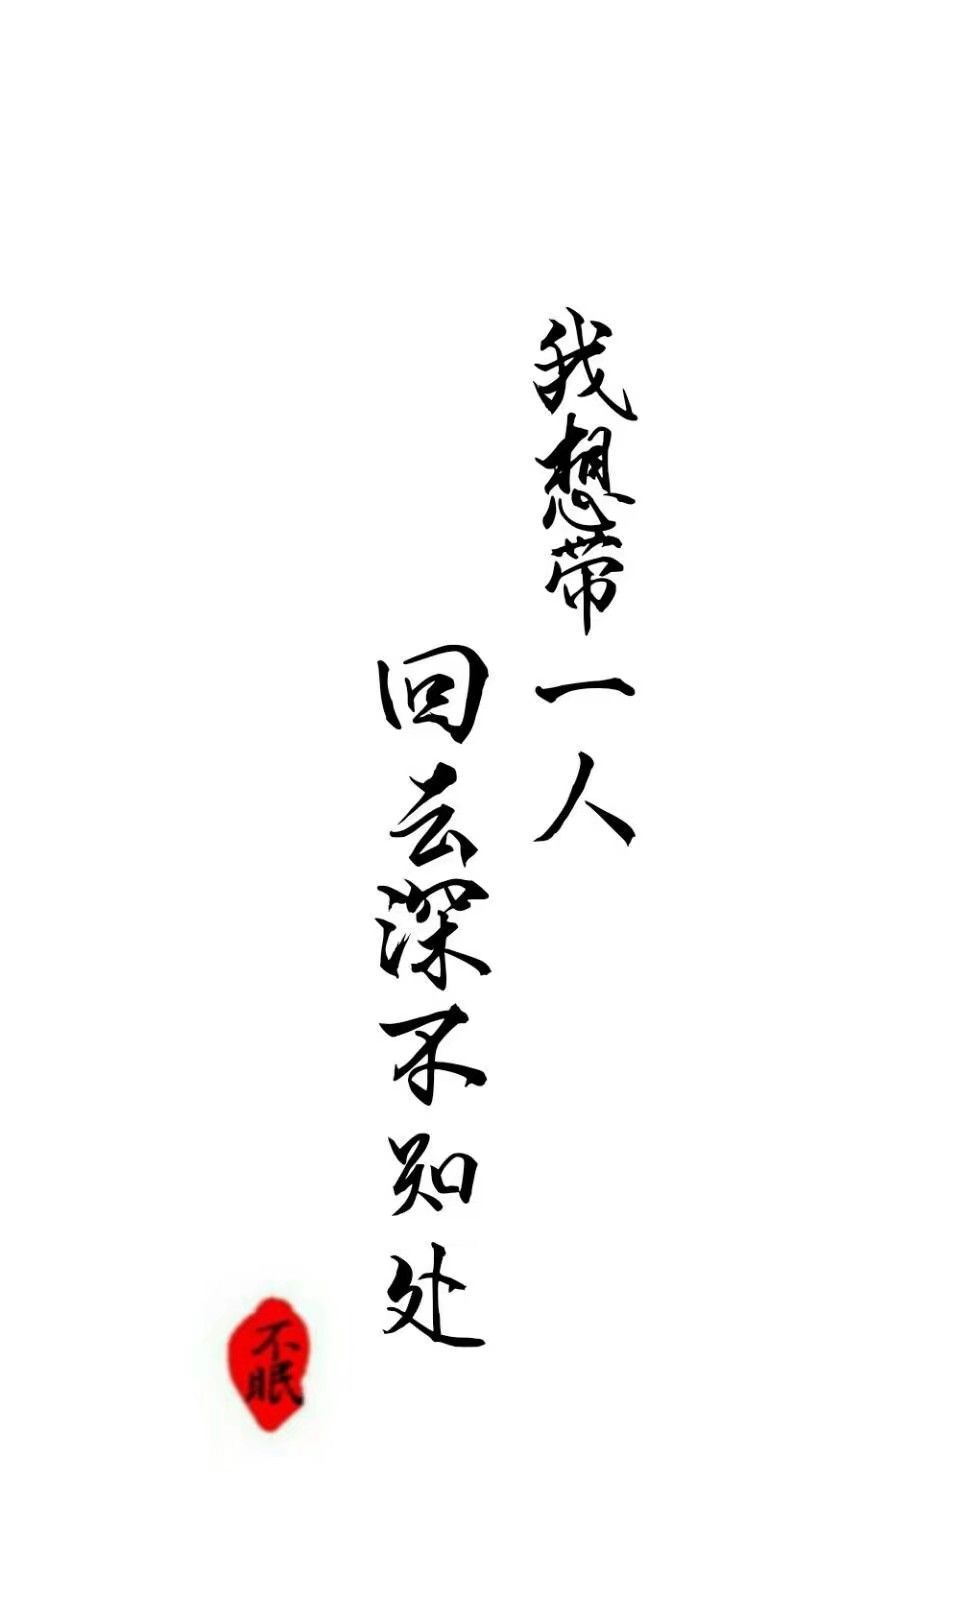 我想带一人
回去深不知处
不眠